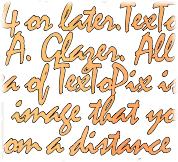 4 or later. TexTo
A. Glazer. All
a of TexToPix i
image that yo
om a distance